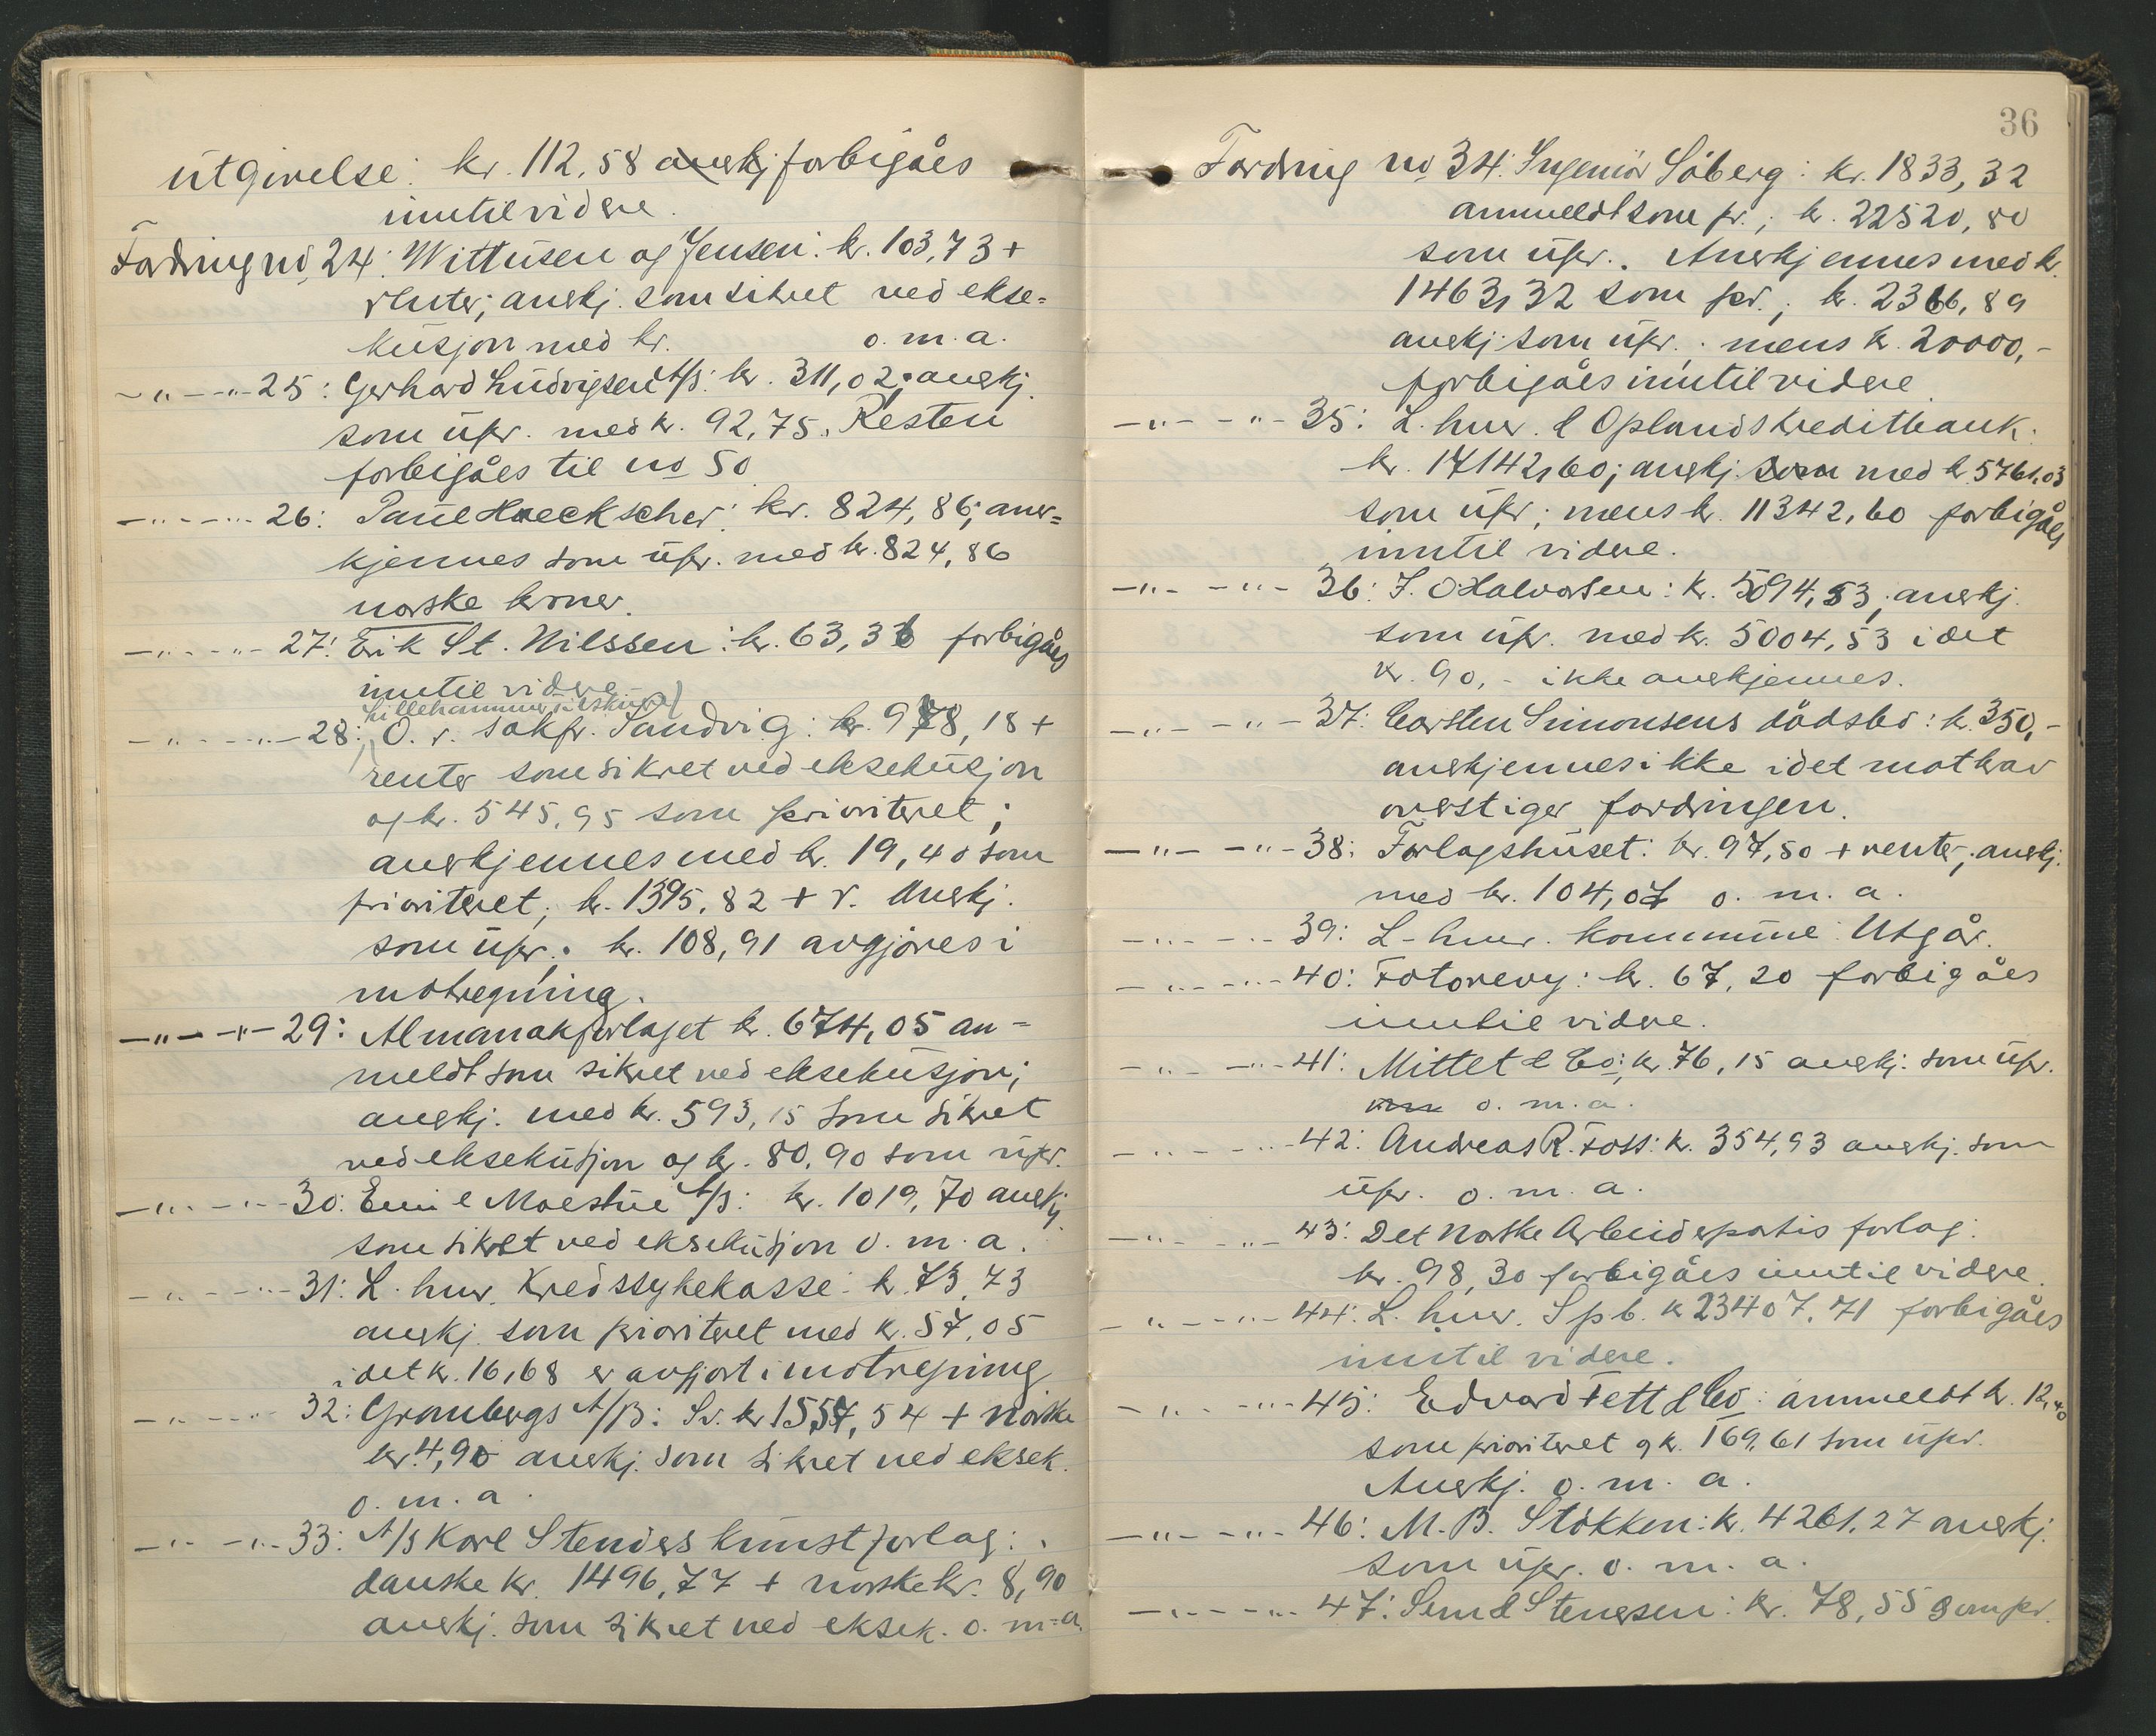 utgivelse: kr. 112,58 anerkj forbigåes
inntil videre.
Fordring no 24: Wittusen og Jensen: kr. 103,73 +
renter; anerkj. som sikret ved ekse=
kusjon med kr. o. m. a.
-"- -"- 25: Gerhard Ludvigsen A/S: kr. 311,02; anerkj.
som upr. med kr. 92,75. Resten
forbigåes til no 50
-"- -"- 26: Paul Heckscher: kr. 824,86; aner=
kjennes som upr. med kr. 824,86
norske kroner.
-"- -"- 27: Erik St. Nilssen: kr. 63,36 forbigåes
inntil videre
Lillehammer tilskuer)
-"- -"- 28: O. r. sakfr. Sandvig: kr. 978,18 +
renter som sikret ved eksekusjon
og kr. 545,95 som prioritert;
anerkjennes med kr. 19,40 som
prioriteret; kr. 1395,82 + r. anerkj.
som upr.; kr. 108,91 avgjøres i
motregning.
-"- -"- 29: Almanakforlaget kr. 674,05 an-
meldt som sikret ved eksekusjon;
anerkj. med kr. 593,15 som sikret
ved eksekusjon og kr. 80,90 som upr.
-"- -"- 30: Emil Moestue A/S: kr. 1019,70 anerkj.
som sikret ved eksekusjon o. m. a.
-"- -"- 31: L. hmr. Kredssykekasse: kr. 73,73
anerkj. som prioriteret med kr. 57,05
idet kr. 16,68 er avgjort i motregning
-"- -"- 32: Grønbergs A/B: Sv. kr 1557,54 + norske
kr. 4,90 anerkj. som sikret ved eksek.
o. m. a.
-"- -"- 33: A/S Karl Stenders kunstforlag:
danske kr. 1496,77 + norske kr. 8,90
anerkj. som sikret ved eksek. o. m. a.
36
Fordring no 34: Ingeniør Söberg: kr. 1833,32
anmeldt som pr.; kr. 22520,80
som upr. Anerkjennes med kr.
1463,32 som pr.; kr. 2366,89
anerkj. som upr.; mens kr. 20000,-
forbigåes inntil videre
-"- -"- 35: L. hmr. & Oplands kreditbank:
kr. 17142,60; anerkj. som med kr 5761,03
som upr; mens kr. 11342,60 forbigåes
inntil videre.
-"- -"- 36: J. O Halvorsen: kr. 5094,53; anerkj.
som upr. med kr. 5004,53 idet
kr. 90,- ikke anerkjennes.
-"- -"- 37: Carsten Simonsens dödsbo: kr. 350,-
anerkjennes ikke idet motkrav
overstiger fordringen.
-"- -"- 38: Forlagshuset: kr. 97,50 + renter; anerkj.
med kr. 104,07 o. m. a.
-"- -"- 39: L-hmr. kommune: Utgår.
-"- -"- 40: Fotorevy: kr. 67,20 forbigåes
inntil videre.
-"- -"- 41: Mittet & Co: kr. 76,15 anerkj. som upr.
o. m. a.
-"- -"- 42: Andreas R. Foss: kr. 354,93 anerkj. som
upr. o. m. a.
-"- -"- 43: Det norske Arbeiderpartis forlag:
kr. 98,30 forbigåes inntil videre.
-"- -"- 44: L. hmr. Spb. kr 23407,71 forbigåes
inntil videre.
-"- -"- 45: Edvard Fett & Co: anmeldt kr. 12,40
som prioriteret og kr. 169,61 som upr.
Anerkj. o. m. a.
-"- -"- 46: M. B. Stokken: kr. 4261,27 anerkj.
som upr. o. m. a.
-"- -"- 47: Sem & Stenersen: kr. 78,55 som pr.